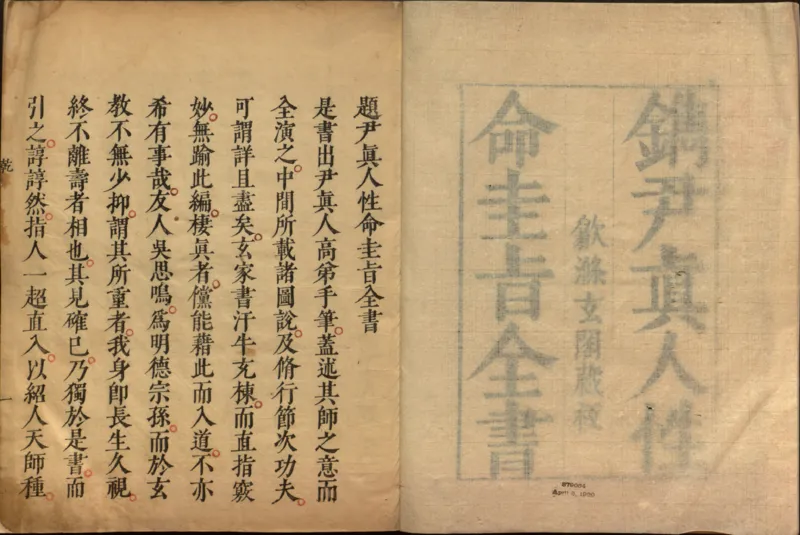 鐫尹眞人性
歙滌玄閣藏
命圭㫖全書
題尹眞人性命圭㫖全書
是書出尹眞人高弟手筆。蓋述其師之意而
全演之。中間所載諸圖說。及脩行節次功夫。
可謂詳且盡矣。玄家書汗牛充棟。而直指竅
妙。無踰此編。棲眞者。儻能藉此而入道。不亦
希有事哉。友人吳思鳴。爲明德宗孫。而於玄
教不無少抑。謂其所重者。我身卽長生久視。
終不離壽者相也。其見確已。乃獨於是書而
引之。諄諄然。指人一超直入。以紹人天師種。
乾
一